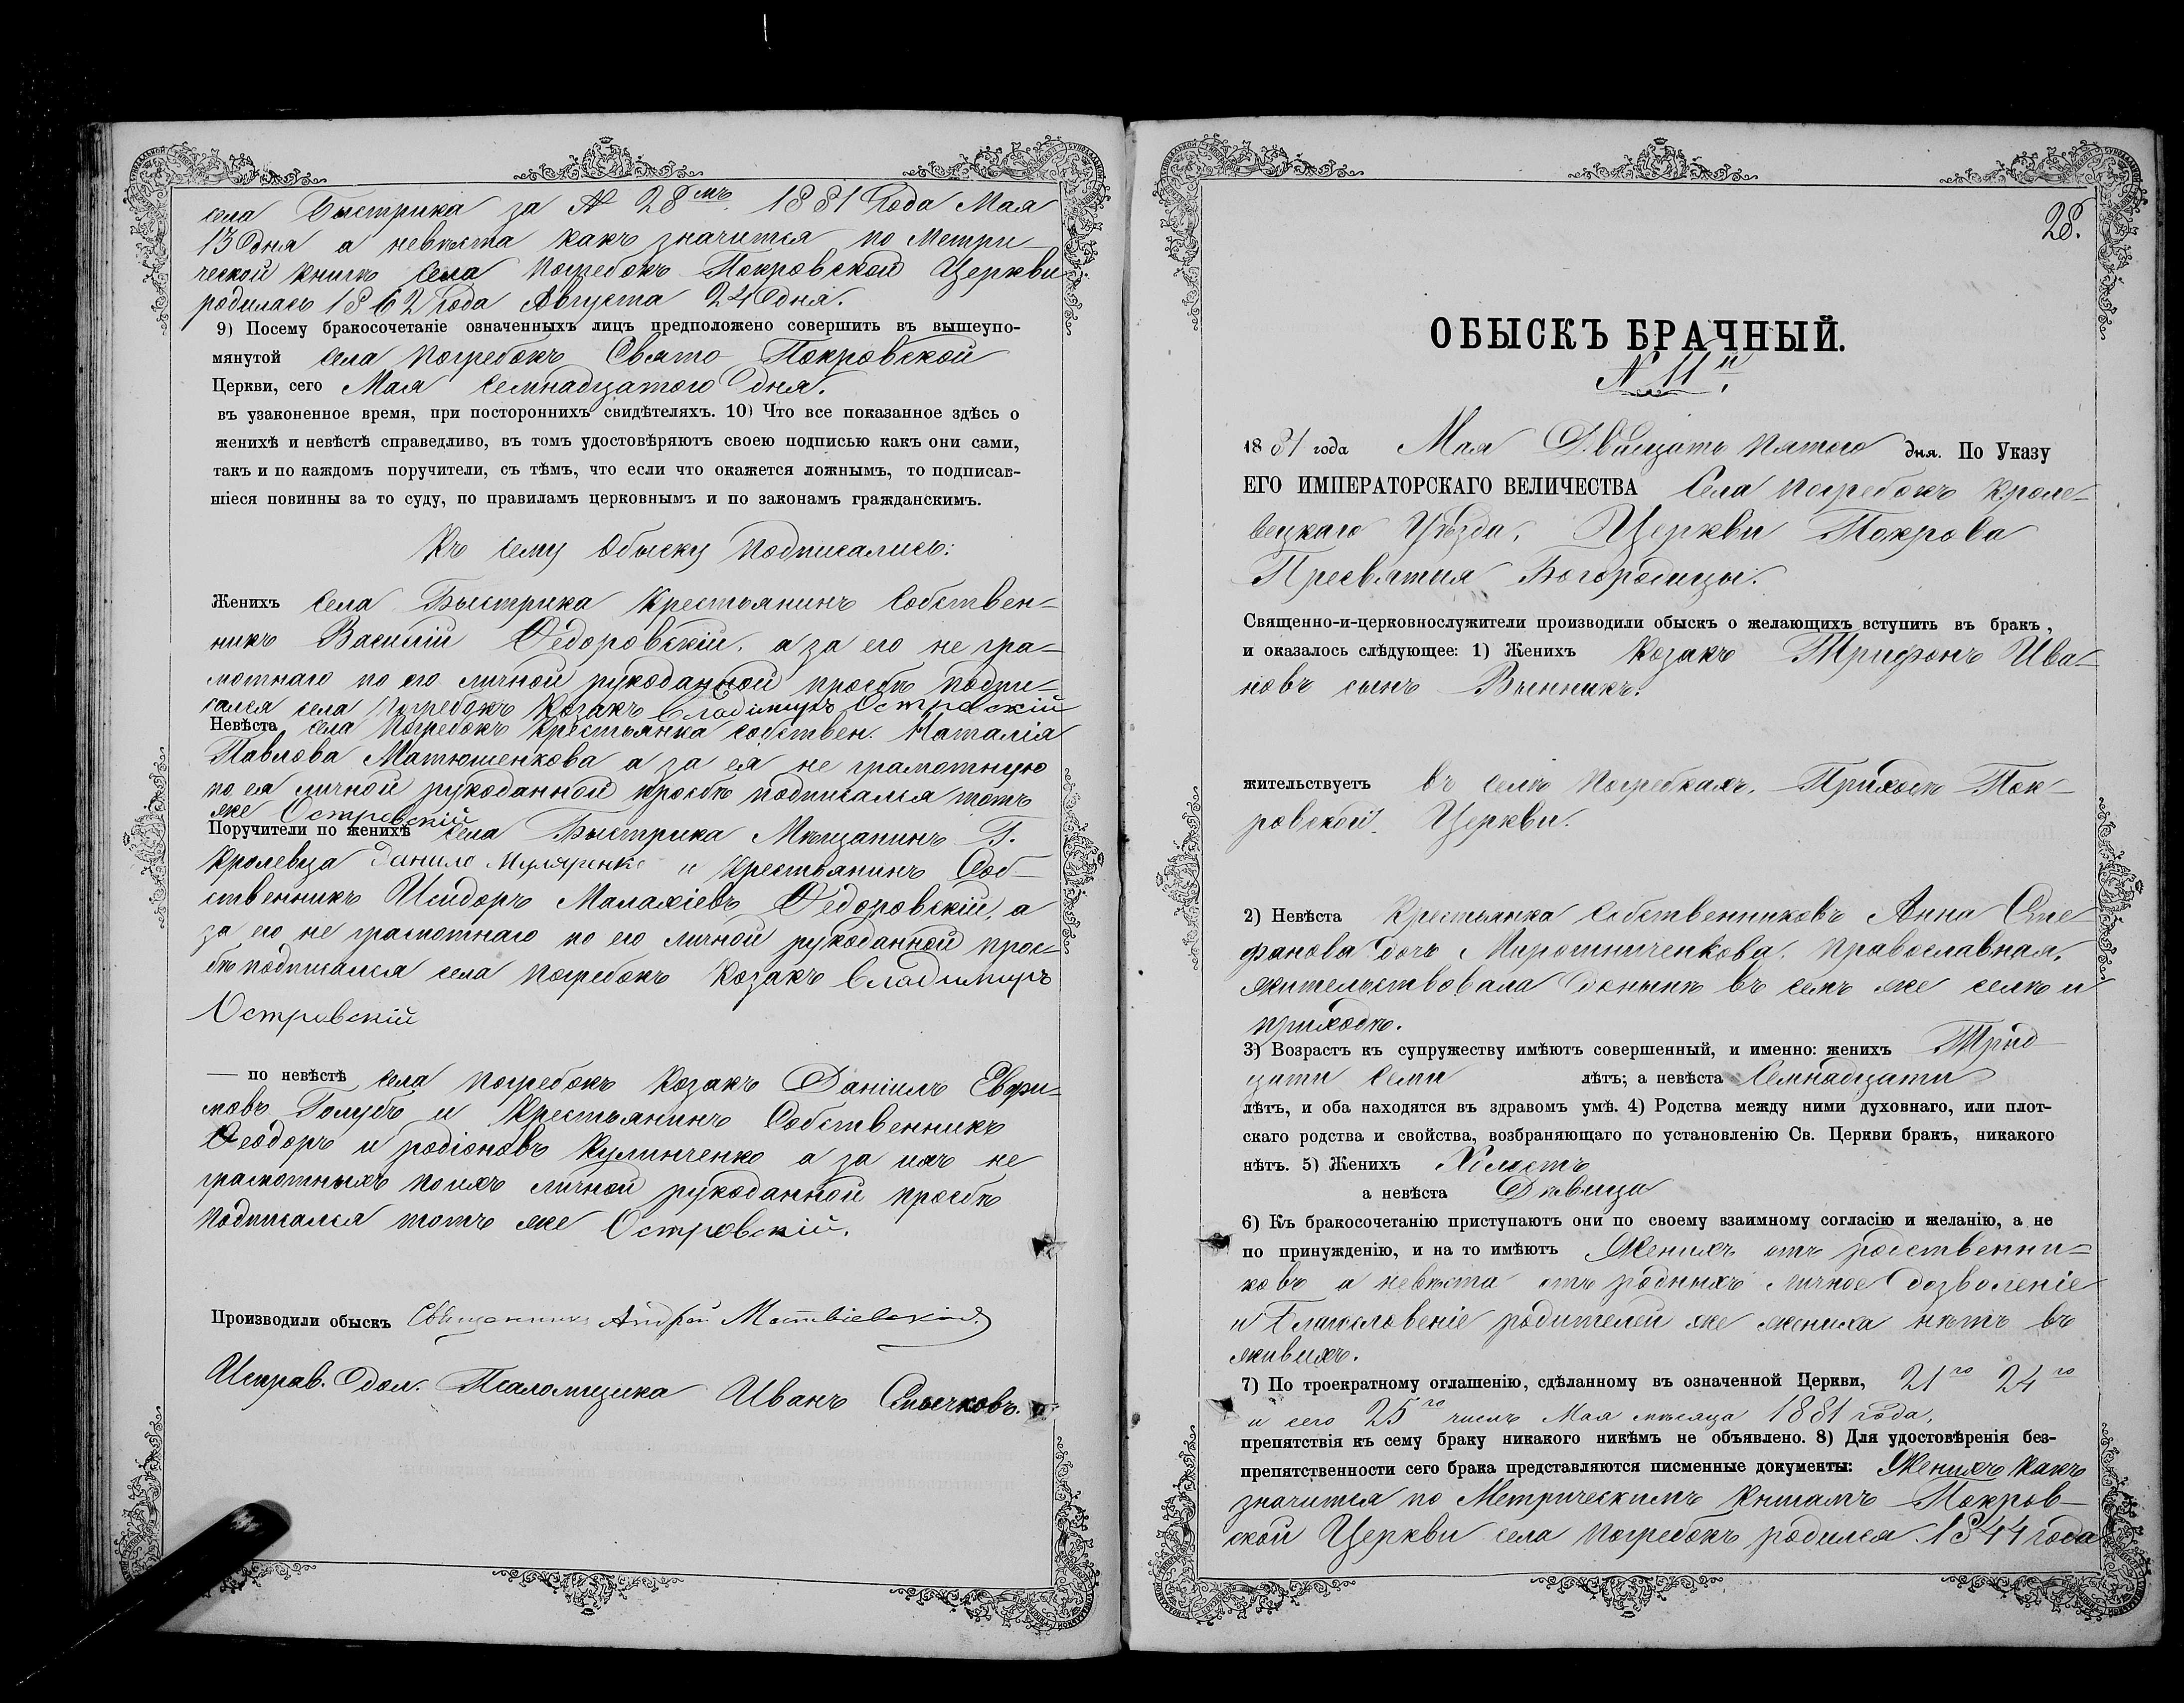 села Быстрика за № 28мъ. 1881 Года Мая
13 дня а невѣста какъ значится по Метри
ческой книгѣ Села Погребокъ Покровской Церкви
родилась 1862 Года Августа 24 дня.
9) Посему бракосочетаніе означенныхъ лицъ предположено совершить въ вышеупо-
мянутой села Погребокъ Свято Покровской
Церкви, сего Мая Семнадцатого дня.
въ узаконенное время, при постороннихъ свидѣтеляхъ. 10) Что все показанное здѣсь о
женихѣ и невѣстѣ справедливо, въ томъ удостовѣряютъ своею подписью какъ они сами,
такъ и по каждомъ поручители, съ тѣмъ, что если что окажется ложнымъ, то подписав-
шіеся повинны за то суду, по правиламъ церковнымъ и по законамъ гражданскимъ.
Къ сему Обыску Подписались:
Женихъ Села Быстрика Крестьянинъ Собствен=
никъ Василій Федоровскій. а за его не гра=
мотнаго по его личной рукоданной просьбѣ подпи=
сался села Погребокъ Козакъ Владимиръ Островскій
Невѣста села Погребокъ Крестьянка собствен. Наталія
Павлова Матюшенкова а за ея не грамотную
по ея личной рукоданной просьбѣ подписался тотъ
же Островскій
Поручители по женихѣ Села Быстрика Мѣщанинъ Г.
Кролевца Данило Муляренко и Крестьянинъ Соб=
ственникъ Исидоръ Малахіевъ Федоровскій, а
за его не грамотнаго по его личной рукоданной прось=
бѣ подписался села Погребокъ Козакъ Владимиръ
Островскій
— по невѣстѣ села Погребокъ Козакъ Даніилъ Евфи=
мовъ Голубъ и Крестьянинъ Собственникъ
Феодоръ и родіоновъ Кулинченко а за ихъ не
грамотныхъ по ихъ личной рукоданной просьбѣ
Подписался тотъ же Островскій.
Производили обыскъ Священникъ Андрей Матвіевскій.
Исправ. Дол. Псаломщика Иванъ Смычковъ.
28.
ОБЫСКЪ БРАЧНЫЙ.
№ 11й.
1881 года Мая Двадцать Пятого дня. По Указу
ЕГО ИМПЕРАТОРСКАГО ВЕЛИЧЕСТВА Села Погребокъ Кроле=
вецкаго Уѣзда, Церкви Покрова
Пресвятыя Богородицы.
Священно-и-церковнослужители производили обыскъ о желающихъ вступить въ бракъ,
и оказалось слѣдующее: 1) Женихъ Козакъ Трифонъ Ива=
новъ сынъ Винникъ.
жительствуетъ въ селѣ Погребкахъ. Приходѣ Пок=
ровской Церкви.
2) Невѣста Крестьянка Собственниковъ Анна Сте
фанова дочь Мирошниченкова. Православная,
жительствовала донынѣ въ семъ же селѣ и
приходѣ.
3) Возрастъ къ супружеству имѣютъ совершенный, и именно: женихъ Трид
цати Семи лѣтъ; а невѣста Семнадцати
лѣтъ, и оба находятся въ здравомъ умѣ. 4) Родства между ними духовнаго, или плот-
скаго родства и свойства, возбраняющаго по установленію Св. Церкви бракъ, никакого
нѣтъ. 5) Женихъ Холостъ
а невѣста Дѣвица
6) Къ бракосочетанію приступаютъ они по своему взаимному согласію и желанію, а не
по принужденію, и на то имѣютъ Женихъ отъ родственни=
ковъ а невѣста отъ родныхъ личное дозволеніе
и Благословеніе родителей же жениха нѣтъ въ
живыхъ.
7) По троекратному оглашенію, сдѣланному въ означенной Церкви, 21го 24го
и сего 25го числъ Мая мѣсяца 1881 года.
препятствія къ сему браку никакого никѣмъ не объявлено. 8) Для удостовѣренія без-
препятственности сего брака представляются писменные документы: Женихъ какъ
значится по Метрическимъ Книгамъ Покров=
ской Церкви села Погребокъ родился 1844 года